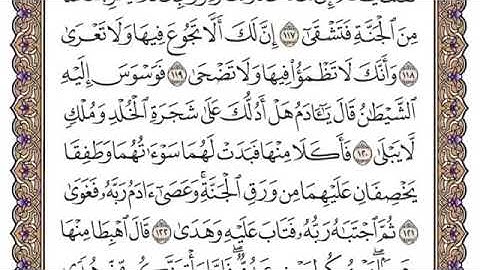 مِنَ ٱلْجَنَّةِ فَتَشْقَىٰٓ ١١٧ إِنَّ لَكَ أَلَّا تَجُوعَ فِيهَا وَلَا تَعْرَىٰ
١١٨ وَأَنَّكَ لَا تَظْمَؤُا۟ فِيهَا وَلَا تَضْحَىٰ ١١٩ فَوَسْوَسَ إِلَيْهِ
ٱلشَّيْطَٰنُ قَالَ يَٰٓـَٔادَمُ هَلْ أَدُلُّكَ عَلَىٰ شَجَرَةِ ٱلْخُلْدِ وَمُلْكٍ
لَّا يَبْلَىٰ ١٢٠ فَأَكَلَا مِنْهَا فَبَدَتْ لَهُمَا سَوْءَٰتُهُمَا وَطَفِقَا
يَخْصِفَانِ عَلَيْهِمَا مِن وَرَقِ ٱلْجَنَّةِ ۚ وَعَصَىٰٓ ءَادَمُ رَبَّهُۥ فَغَوَىٰ
١٢١ ثُمَّ ٱجْتَبَٰهُ رَبُّهُۥ فَتَابَ عَلَيْهِ وَهَدَىٰ ١٢٢ قَالَ ٱهْبِطَا مِنْهَا